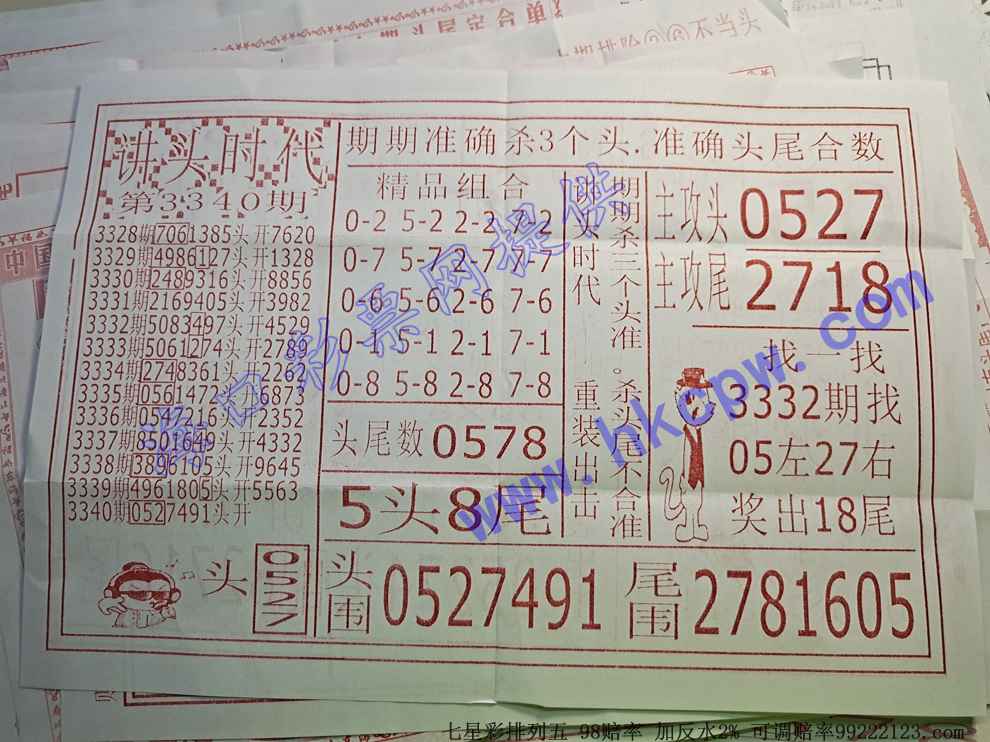 期头尾定合单
期排除②⑥不当头
讲头时代
第3340期
3328期7061385头开7620
3329期4986127头开1328
3330期2489316头开8856
3331期2169405头开3982
3332期5083497头开4529
3333期5061274头开2789
3334期2748361头开2262
3335期0561472头开6873
3336期0547216头开2352
3337期8501649头开4332
3338期3896105头开9645
3339期4961805头开5563
3340期0527491头开
头
0527
期期准确杀3个头.准确头尾合数
精品组合
0-2 5-2 2-2 7-2
0-7 5-7 2-7 7-7
0-6 5-6 2-6 7-6
0-1 5-1 2-1 7-1
0-8 5-8 2-8 7-8
头尾数0578
5头8尾
讲头时代 重装出击
期期杀三个头准。杀头尾不合准
主攻头0527
主攻尾2718
找一找
3332期找
05左27右
奖出18尾
头围0527491
尾围2781605
彩票网提供
www.hkcpw.com
七星彩排列五 98赔率 加反水2% 可调赔率99222123.com